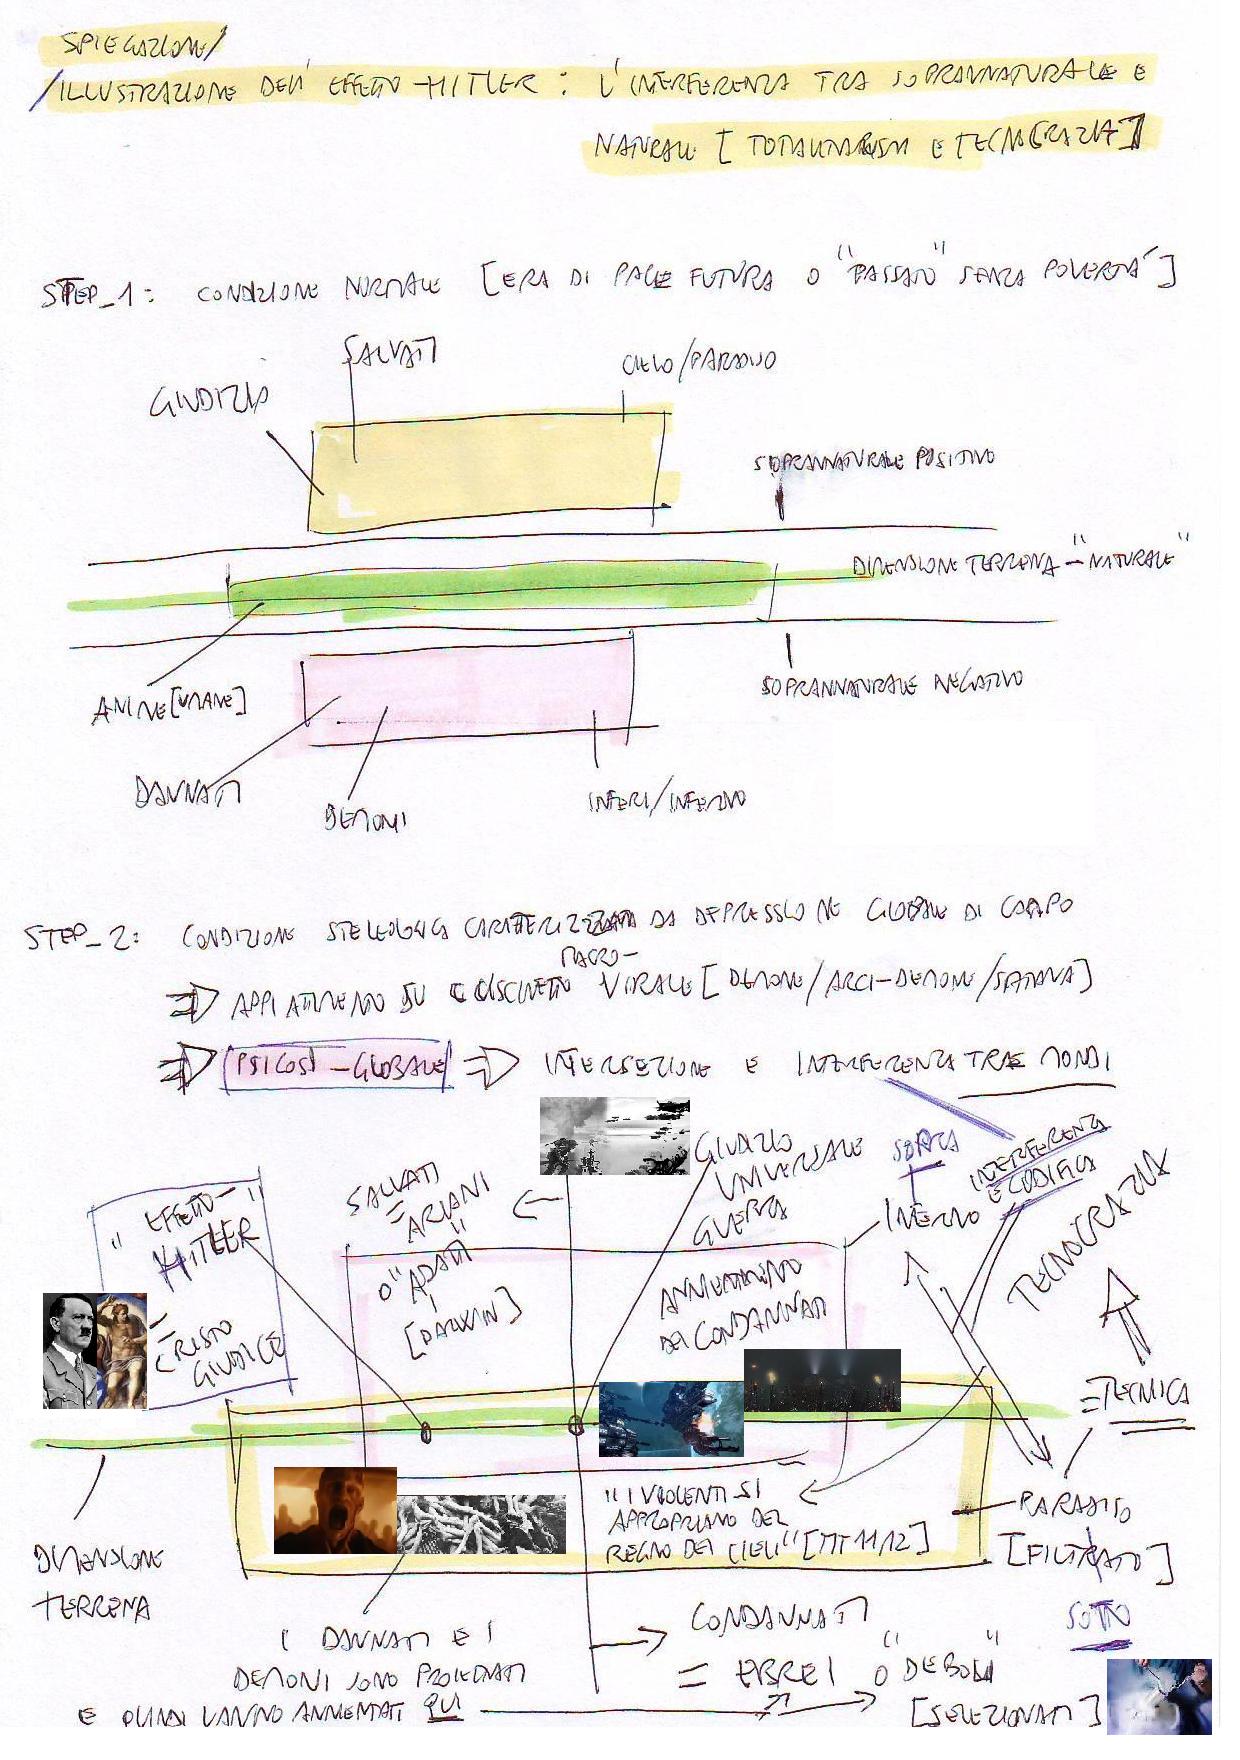 SPIEGAZIONE/
/ILLUSTRAZIONE DELL'EFFETTO-HITLER: L'INTERFERENZA TRA SOPRANNATURALE E
NATURALE [TOTALITARISMI E TECNOCRAZIA]
STEP_1: CONDIZIONE NORMALE [ERA DI PACE FUTURA O "PASSATO" SENZA POVERTÀ]
SALVATI
CIELO/PARADISO
GIUDIZIO
SOPRANNATURALE POSITIVO
DIMENSIONE TERRENA - "NATURALE"
ANIME [UMANE]
SOPRANNATURALE NEGATIVO
DANNATI
DEMONI
INFERI/INFERNO
STEP_2: CONDIZIONE DA DEPRESSIONE GLOBALE DI CAMPO
MACRO-
⇒ APPIATTIMENTO SU VIRALE [DEMONE/ARCI-DEMONE/SATANA]
⇒ [PSICOSI-GLOBALE] ⇒ INTERSEZIONE E INTERFERENZA TRA MONDI
"EFFETTO-"
HITLER
=
CRISTO
GIUDICE
SALVATI
=
ARIANI
O "ADATTI"
[DARWIN]
GIUDIZIO
UNIVERSALE
=
GUERRA
ANNIENTAMENTO
DEI CONDANNATI
SOPRA
INFERNO
INTERFERENZA
E CODIFICA
TECNOCRAZIA
= TECNICA
"I VIOLENTI SI
APPROPRIANO DEL
REGNO DEI CIELI" [MT 11/12]
PARADISO
[FILTRATO]
SOTTO
DIMENSIONE
TERRENA
I DANNATI E I
DEMONI SONO PROIETTATI
E QUINDI VANNO ANNIENTATI QUI
CONDANNATI
= EBREI O "DEBOLI"
[SELEZIONATI]